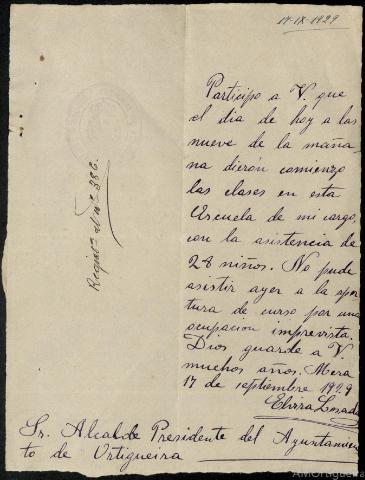 17-IX-1929
Participo a V. que
el dia de hoy a las
nueve de la maña-
na dierón comienzo
las clases en esta
Escuela de mi cargo,
con la asistencia de
28 niños. No pude
asistir ayer a la aper
tura de curso por una
ocupación imprevista.
Dios guarde a V.
muchos años. Mera
17 de septiembre 1929
Elvira Losada
Sr. Alcalde Presidente del Ayuntamien
to de Ortigueira
Regist.º al nº 386.
AMOrtigueira